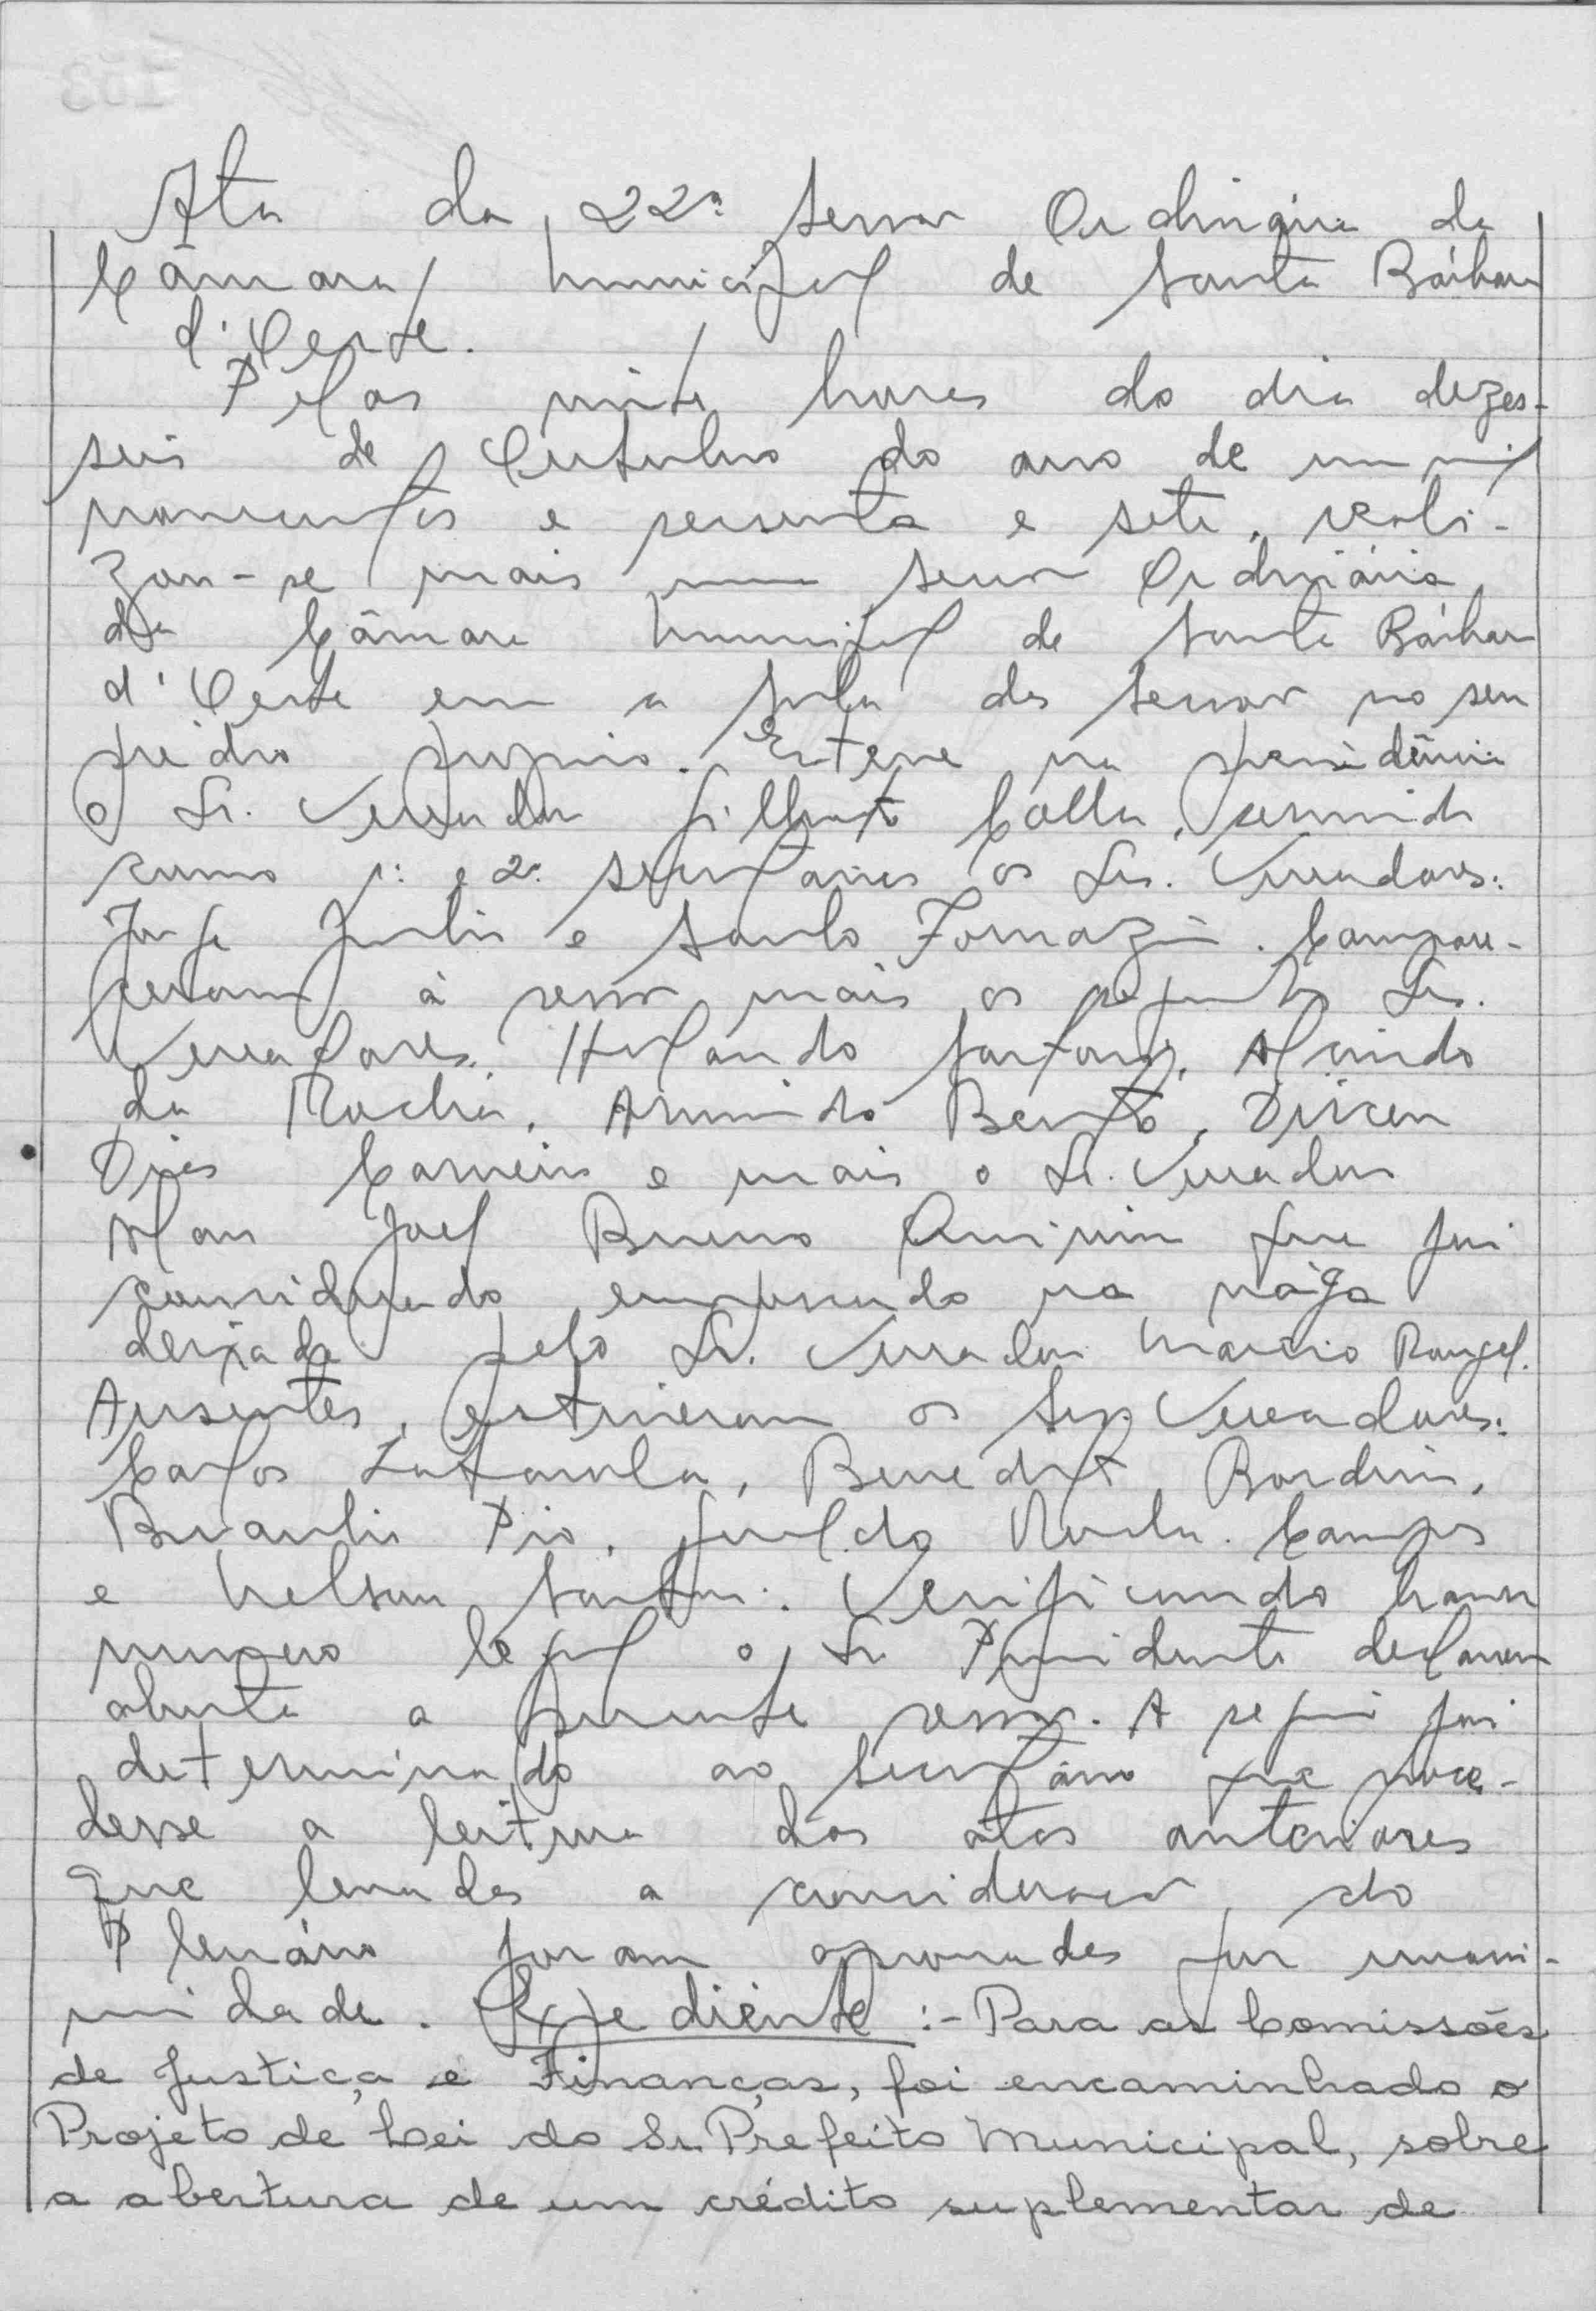 Ata da 22ª sessão Ordinária da
Câmara Municipal de Santa Bárbara
d'Oeste.
Pelas vinte horas do dia dezes-
seis de Outubro do ano de um mil
novecentos e sessenta e sete, reali-
zou-se mais uma sessão Ordinária
da Câmara Municipal de Santa Bárbara
d'Oeste em a sala das sessões no seu
prédio próprio. Esteve na presidência
o Sr. Vereador Gilberto Calla, servindo
como 1º e 2º secretários os Srs. Vereadores:
Jorge Juntin e Saulo Fornazin. Compare-
ceram à sessão mais os seguintes Srs.
Vereadores: Holando Sartori, Alcindo
da Rocha, Armindo Bento, Dirceu
Dias Carneiro e mais o Sr. Vereador
Joel Bueno que foi
considerado empossado na vaga
deixada pelo Sr. Vereador Marino Rangel.
Ausentes, estiveram os Srs. Vereadores:
Carlos, Benedito Bordin,
Braulio Pio, Geraldo Rocha Campos
e Nelson Sartori. Verificando haver
número legal o Sr. Presidente declarou
aberta a presente sessão. A seguir foi
determinado ao Secretário que proce-
desse a leitura das atas anteriores
que levadas a consideração do
Plenário foram aprovadas por unani-
midade. Expediente :- Para as Comissões
de Justiça e Finanças, foi encaminhado o
Projeto de Lei do Sr. Prefeito Municipal, sobre
a abertura de um crédito suplementar de